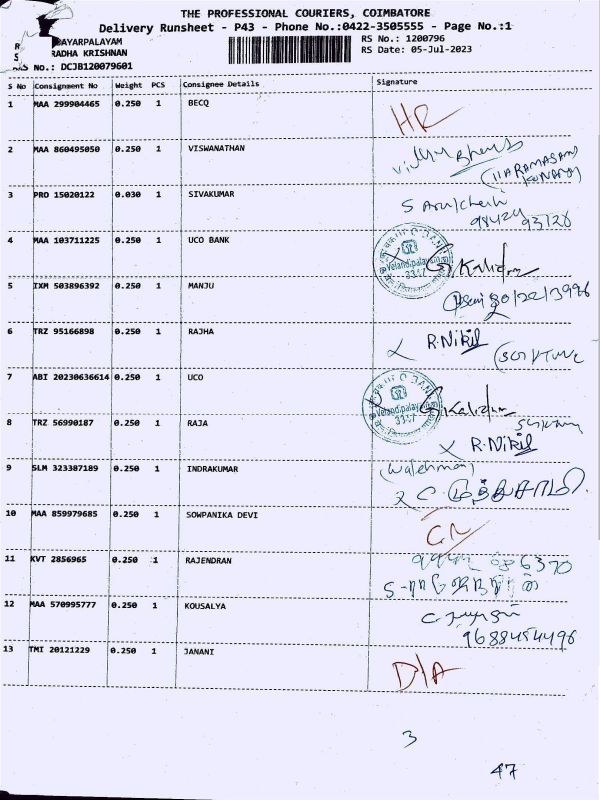 THE PROFESSIONAL COURIERS, COIMBATORE
Delivery Runsheet - P43 - Phone No.:0422-3505555 - Page No.:1
BAYARPALAYAM RS No.: 1200796
RADHA KRISHNAN RS Date: 05-Jul-2023
No.: DCJB120079601
S No Consignment No Weight PCS Consignee Details Signature
1 MAA 299904465 0.250 1 BECQ HR
2 MAA 860495050 0.250 1 VISWANATHAN
3 PRO 15020122 0.030 1 SIVAKUMAR
4 MAA 103711225 0.250 1 UCO BANK G. Kalidum
Velandipalayam
3347
5 IXM 503896392 0.250 1 MANJU
6 TRZ 95166898 0.250 1 RAJHA R.Nikil
7 ABI 20230636614 0.250 1 UCO G. Kalidum
Velandipalayam
3347
8 TRZ 56990187 0.250 1 RAJA R.Nikil
(Watchman)
9 SLM 323387189 0.250 1 INDRAKUMAR முத்துசாமி
10 MAA 859979685 0.250 1 SOWPANIKA DEVI
11 KVT 2856965 0.250 1 RAJENDRAN
12 MAA 570995777 0.250 1 KOUSALYA
9688454496
13 TMI 20121229 0.250 1 JANANI D/A
3
47